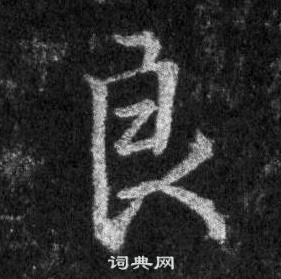 良
词典网